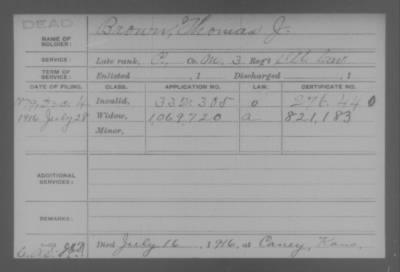 DEAD
NAME OF SOLDIER: Brown, Thomas J.
SERVICE: Late rank, Co. M, 3 Reg't Cav
TERM OF SERVICE: Enlisted , 1 Discharged , 1
DATE OF FILING. CLASS. APPLICATION NO. LAW. CERTIFICATE NO.
Invalid,
1916 July 28 Widow, 1,069,720 a 821,183
Minor,
ADDITIONAL SERVICES:
REMARKS:
Died July 16, 1916, at Caney, Kans.